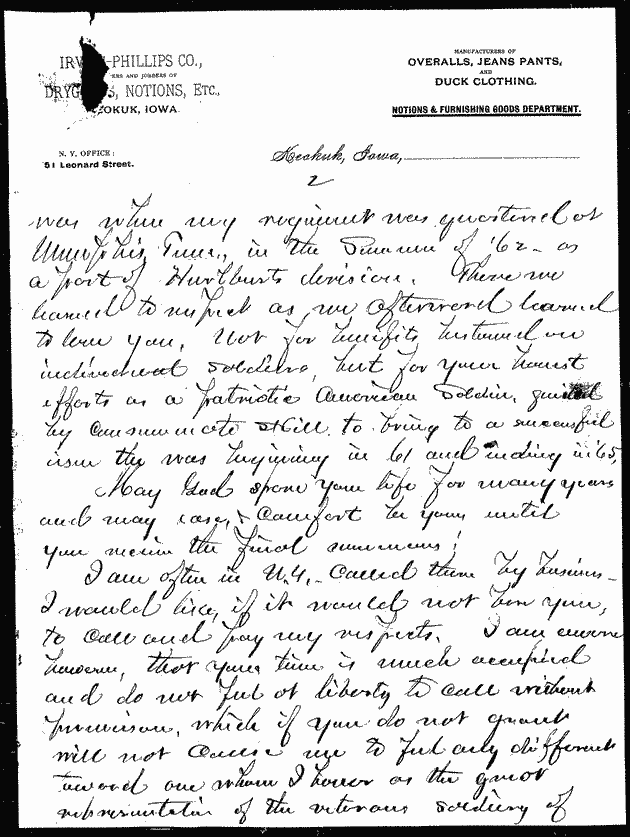 IRWIN-PHILLIPS CO.,
ERS AND JOBBERS OF
DRYG S, NOTIONS, ETC.,
OKUK, IOWA.
MANUFACTURERS OF
OVERALLS, JEANS PANTS,
AND
DUCK CLOTHING.
NOTIONS & FURNISHING GOODS DEPARTMENT.
N. Y. OFFICE:
51 Leonard Street.
Keokuk, Iowa,
2
was when my regiment was quartered at
Memphis, Tenn., in the Summer of '62 - as
a part of Hurlburts division. There we
learned to respect as we afterward learned
to love you, Not for benefits bestowed on
individual soldiers, but for your honest
efforts as a patriotic American Soldier, guided
by consummate skill to bring to a successful
issue the war begining in 61 and ending in '65,
May God spare your life for many years
and may ease & comfort be yours until
you receive the final summons!
I am often in N.Y. - Called there by business -
I would like, if it would not bore you,
to call and pay my respects. I am aware
however, that your time is much occupied
and do not feel at liberty to call without
permission, which if you do not grant
will not cause me to feel any different
toward one whom I honor as the great
representative of the veteran soldiery of